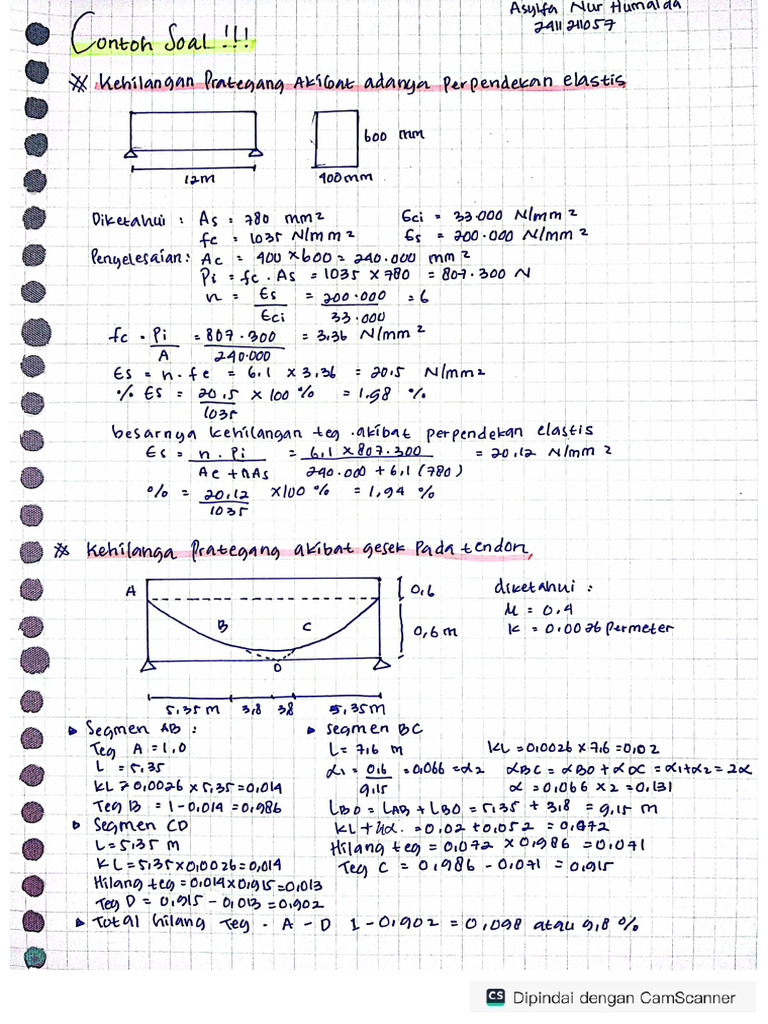 Asylfa Nur Humaida
2411211057
Contoh Soal !!!
※ Kehilangan Prategang Akibat adanya Perpendekan elastis
600 mm
12m
400mm
Diketahui : As = 780 mm2
Eci = 33.000 N/mm2
fc = 1035 N/mm2
Es = 200.000 N/mm2
Penyelesaian: Ac = 400 x 600 = 240.000 mm2
Pi = fc . As = 1035 x 780 = 807.300 N
n = Es/Eci = 200.000/33.000 = 6
fc = Pi/A = 807.300/240.000 = 3,36 N/mm2
Es = n . fc = 6,1 x 3,36 = 20,5 N/mm2
% Es = 20,5/1035 x 100 % = 1,98 %
besarnya kehilangan teg .akibat perpendekan elastis
Es = n . Pi/Ac + nAs = 6,1 x 807.300/240.000 + 6,1 (780) = 20,12 N/mm2
% = 20,12/1035 x100 % = 1,94 %
※ Kehilanga Prategang akibat gesek Pada tendon,
A
B
C
D
0,6
0,6 m
diketahui :
M = 0.4
K = 0.0026 Permeter
5,35 m 3,8 3,8 5,35m
▸ Segmen AB :
Teg A = 1,0
L = 5,35
KL = 0,0026 x 5,35 = 0,014
Teg B = 1 - 0,014 = 0,986
▸ Segmen CD
L = 5,35 m
KL = 5,35 x 0,0026 = 0,014
Hilang teg = 0,014 x 0,915 = 0,013
Teg D = 0,915 - 0,013 = 0,902
▸ Segmen BC
L = 7,6 m
KL = 0,0026 x 7,6 = 0,02
α1 = 0,6/9,15 = 0,066 = α2
αBC = αBO + αOC = α1 + α2 = 2α
α = 0,066 x 2 = 0,131
LBO = LAB + LBO = 5,35 + 3,8 = 9,15 m
KL + Mα = 0,02 + 0,052 = 0,072
Hilang teg = 0,072 x 0,986 = 0,071
Teg C = 0,986 - 0,071 = 0,915
▸ Total hilang Teg . A - D 1 - 0,902 = 0,098 atau 9,8 %
CS Dipindai dengan CamScanner